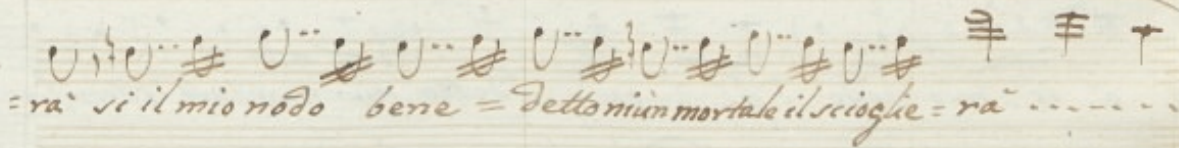 =rà si il mio nodo bene = detto niùn mortale il scioglie = rà ------